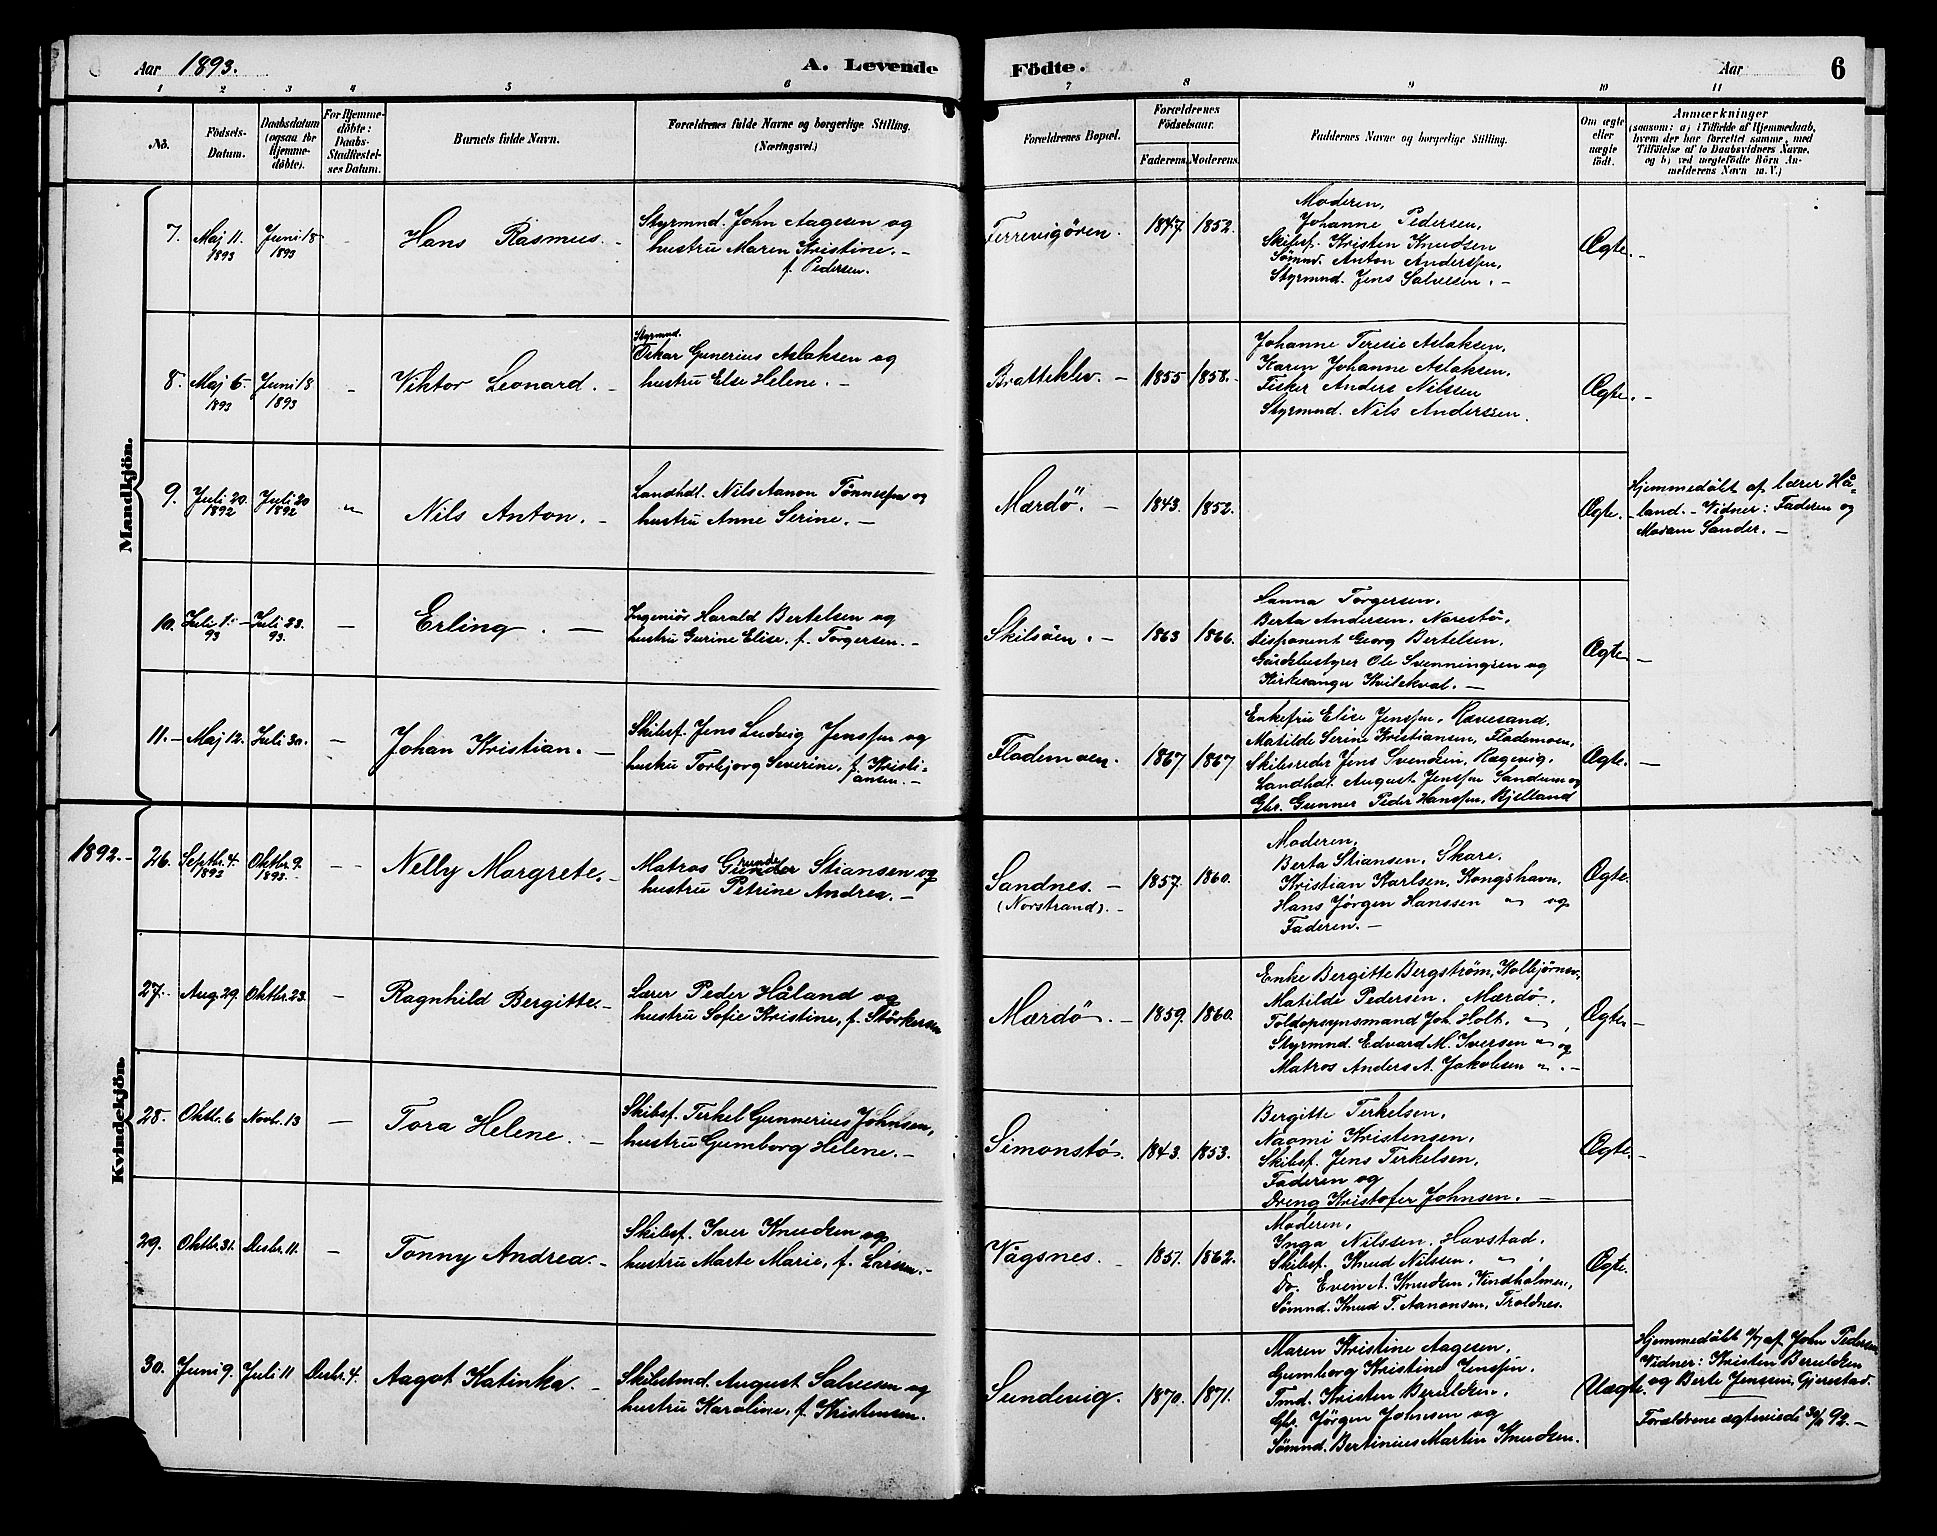 Aar 1893. A. Levende Fødte. Aar 6
1 2 3 4 5 6 7 8 9 10 11
No.
Fødsels-
Datum.
Daabsdatum
(ogsaa for
Hjemme-
døbte).
For Hjemme-
døbte:
Daabs-
Stadfæstel-
ses Datum.
Barnets fulde Navn.
Forældrenes fulde Navne og borgerlige Stilling.
(Næringsvei.)
Forældrenes Bopæl.
Forældrenes
Fødselsaar.
Faderens. Moderens.
Faddernes Navne og borgerlige Stilling.
Om ægte
eller
uægte
født.
Anmærkninger
(saasom: a) i Tilfælde af Hjemmedaab,
hvem der har forrettet samme, med
Tilføielse af to Daabsvidners Navne,
og b) ved uægtefødte Børn An-
melderens Navn m. V.)
Mandkjøn.
7. Maj 11.
1893
Juni 18
1893
Hans Rasmus.
Styrmnd. John Aagesen og
hustru Maren Kristine. -
f. Pedersen.
Ferrevigøren.
1847. 1852.
Moderen,
Johanne Pedersen,
Skibsf. Kristen Knudsen
Sømnd. Anton Anderssen,
Styrmnd. Jens Salvesen. -
Ægte. -
8. Maj 6-
1893
Juni 18
1893
Viktor Leonard. -
Styrmnd.
Oskar Gunerius Aslaksen og
hustru Else Helene. -
Bratteklev. -
1855 1858.
Johanne Teresie Aslaksen,
Karen Johanne Aslaksen,
Fisker Anders Nilssen
Styrmnd. Nils Anderssen.
Ægte. -
9. Juli 20.
1892
Juli 20
1892
Nils Anton. -
Landhdl. Nils Aanon Tønnessen og
hustru Anne Serine. -
Mærdö. -
1843. 1852.
Ægte. -
Hjemmedøbt af lærer Hå-
land. - Vidner: Faderen og
Madam Sander. -
10. Juli 1.
93
Juli 23.
93.
Erling. -
Ingeniør Harald Bertelsen og
hustru Gurine Elise, f. Torgersen. -
Skilsøen. -
1863 1866.
Hanna Torgersen,
Berta Andersen, Narestø,
disponent Georg Bertelsen,
Gårdbestyrer Ole Svenningsen og
Kirkesanger Kvilekval. -
Ægte -
11. - Maj 12. Juli 30.
Johan Kristian. -
Skibsf. Jens Ludvig Jenssen og
hustru Torbjorg Severine, f. Kristi-
ansen. -
Flademoen.
1867 1867
Enkefru Elise Jenssen, Revesand,
Matilde Serine Kristiansen, Flademoen,
Skibsreder Jens Svendsen, Rægevig,
Landhdl. August Jenssen Sandum og
Gbr. Gunner Peder Hanssen, Bjelland
Ægte. -
Kvindekjøn.
1892. - 26. Septbr. 4.
1892
Oktbr. 9.
1893.
Nelly Margrete. -
Matros Gunder Stiansen og
hustru Petrine Andrea. -
Sandnes. -
(Norstrand). -
1857. 1860.
Moderen,
Berta Stiansen, Skare,
Kristian Karlsen, Kongshavn,
Hans Jørgen Hanssen " og
Faderen. -
Ægte.
27. Aug. 29. Oktbr. 23.
Ragnhild Bergitte. -
Lærer Peder Håland og
hustru Sofie Kristine, f. Störkersen
Mærdö. -
1859. 1860.
Enke Bergitte Bergström, Kolbjørnsv.
Matilde Pedersen, Mærdø,
Toldopsynsmand Joh. Holt. " ,
Styrmnd. Edvard M. Iversen " og
Matros Anders A. Jakobsen " . -
Ægte -
28. Oktbr. 6 Novbr. 13 -
Tora Helene. -
Skibsf. Terkel Gunnerius Johnsen,
hustru Gumborg Helene. -
Simonstø.
1843. 1853.
Bergitte Terkelsen,
Naomi Kristensen,
Skibsf. Jens Terkelsen,
Faderen og
Dreng Kristofer Johnsen. -
Ægte. -
29. Oktbr. 31. Desbr. 11. -
Tonny Andrea. -
Skibsf. Iver Knudsen og
hustru Marte Marie, f. Larsen. -
Vågsnes. -
1851. 1862.
Moderen,
Inga Nilssen, Havstad,
Skibsf. Knud Nilsen, " ,
Do. Even A. Knudsen, Vindholmen,
Sømnd. Knud T. Aanonsen, Troldnes.
Ægte.
30. Juni 9. Juli 11 Desbr. 4.
Aagot Katinka. -
Skibstmd. August Salvesen og
hustru Karoline, f. Kristensen.
Sundevig.
1870. 1871.
Maren Kristine Aagesen,
Gumborg Kristine Jenssen,
Tmd. Kristen Beruldsen,
Gbr. Jörgen Johnsen og
Sømnd. Bertinius Martin Knudsen.
Uægte.
Hjemmedøbt af John Pedersen
Vidner: Kristen Beruldsen
og Berte Jenssen, Gjerestad.
Forældrene ægteviede 92. -